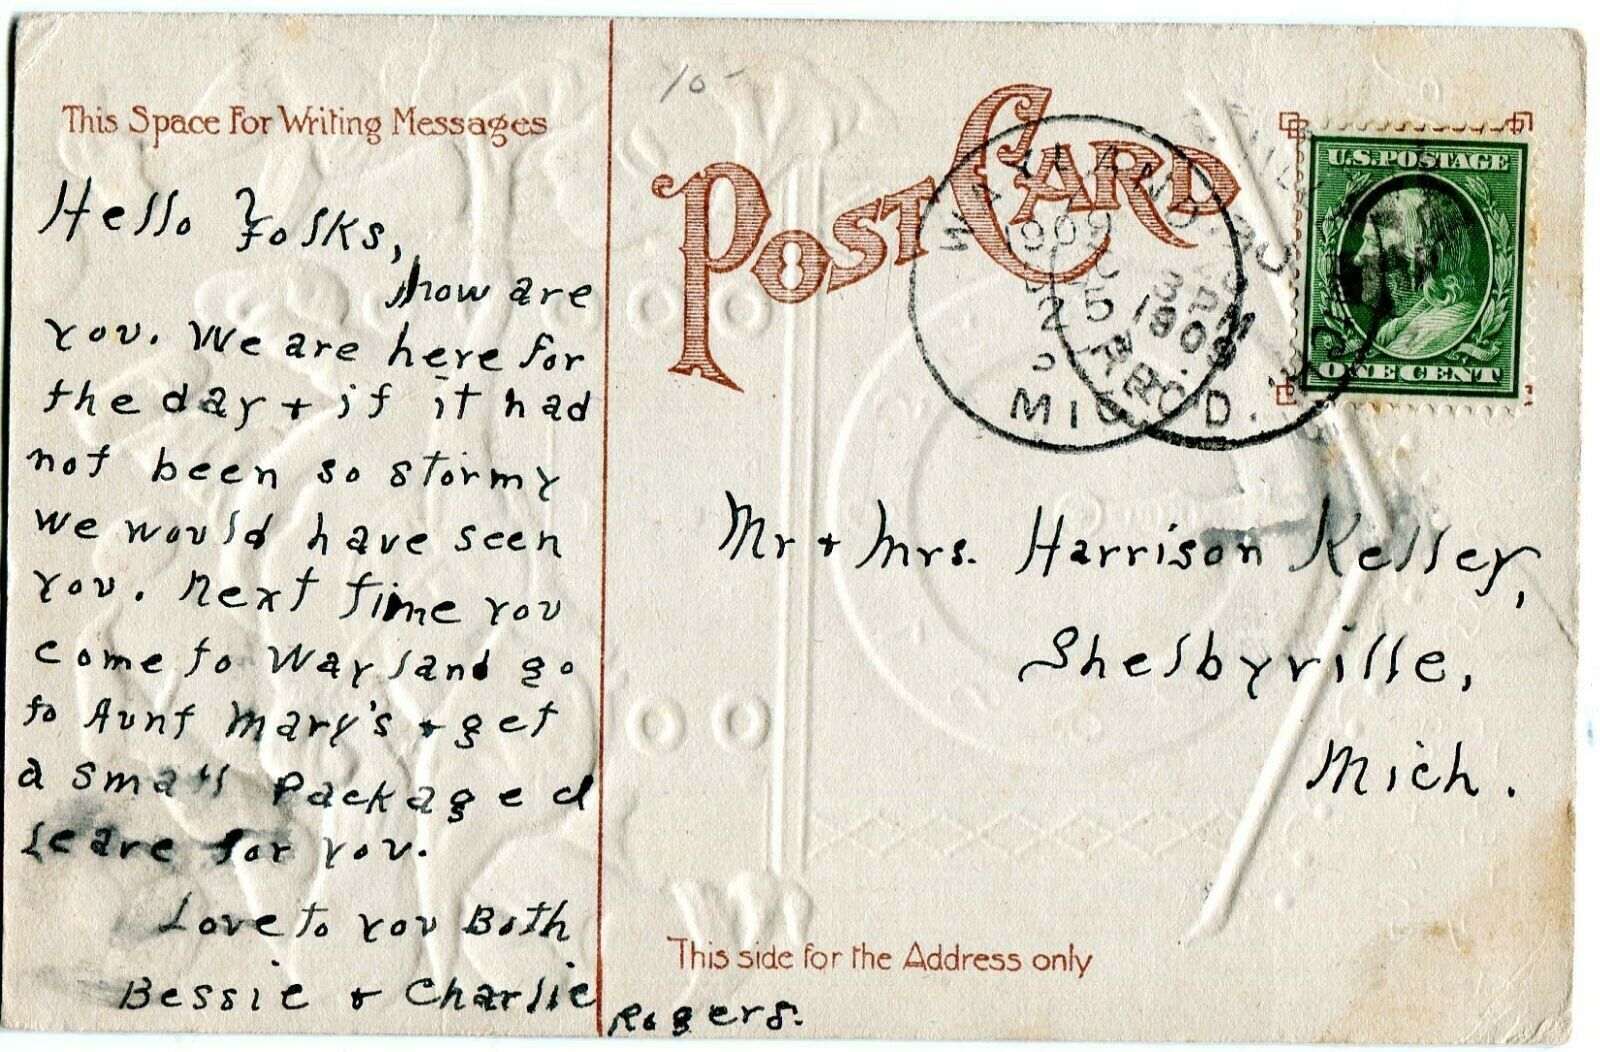 This Space For Writing Messages
Hello Folks,
how are
you. We are here for
the day + if it had
not been so stormy
we would have seen
you. Next time you
come to Wayland go
to Aunt Mary's + get
a small package I
leave for you.
Love to you Both
Bessie + Charlie Rogers.
10-
POST CARD
WAYLAND
1909
MICH.
25
3 PM
1909
REC'D.
U.S. POSTAGE
ONE CENT
Mr + Mrs. Harrison Kelley,
Shelbyville,
Mich.
This side for the Address only